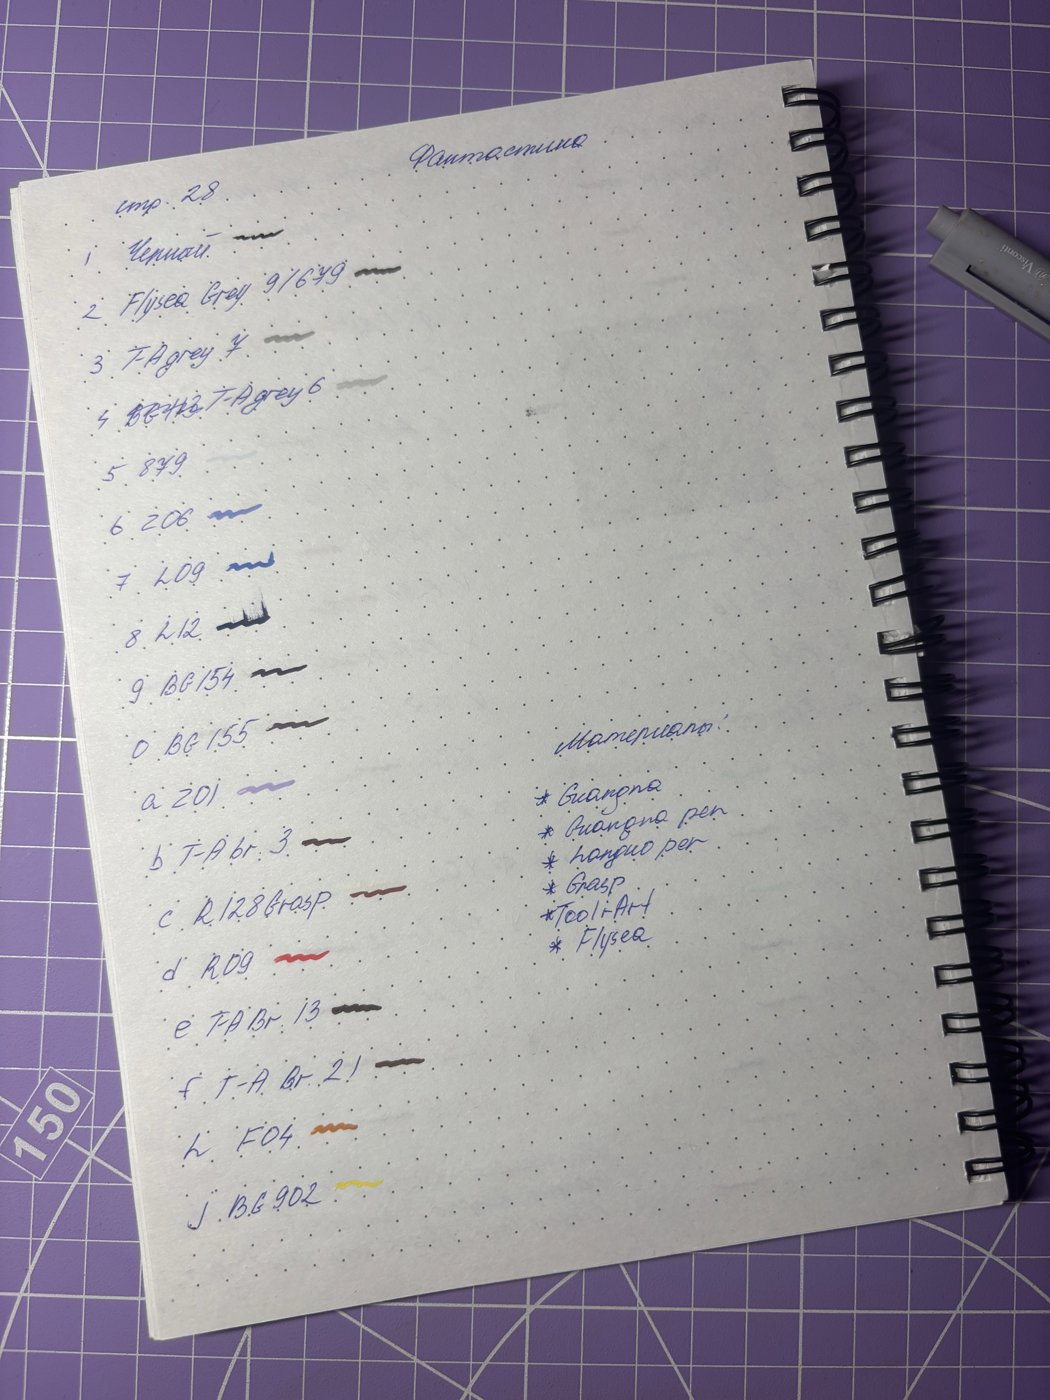 Фантастика
стр. 28
1 Черный
2 Flysea Grey 9/679
3 T-Agrey 7
4 T-Agrey 6
5 879
6 206
7 L09
8 L12
9 BG154
0 BG155
a 201
b T-A br. 3
c R128Grasp
d R09
e T-A Br. 13
f T-A Br. 21
h F04
j BG902
Материалы:
* Guangna
* Guangna pen
* Languo pen
* Grasp
* Tool-Art
* Flysea
150
Visconti